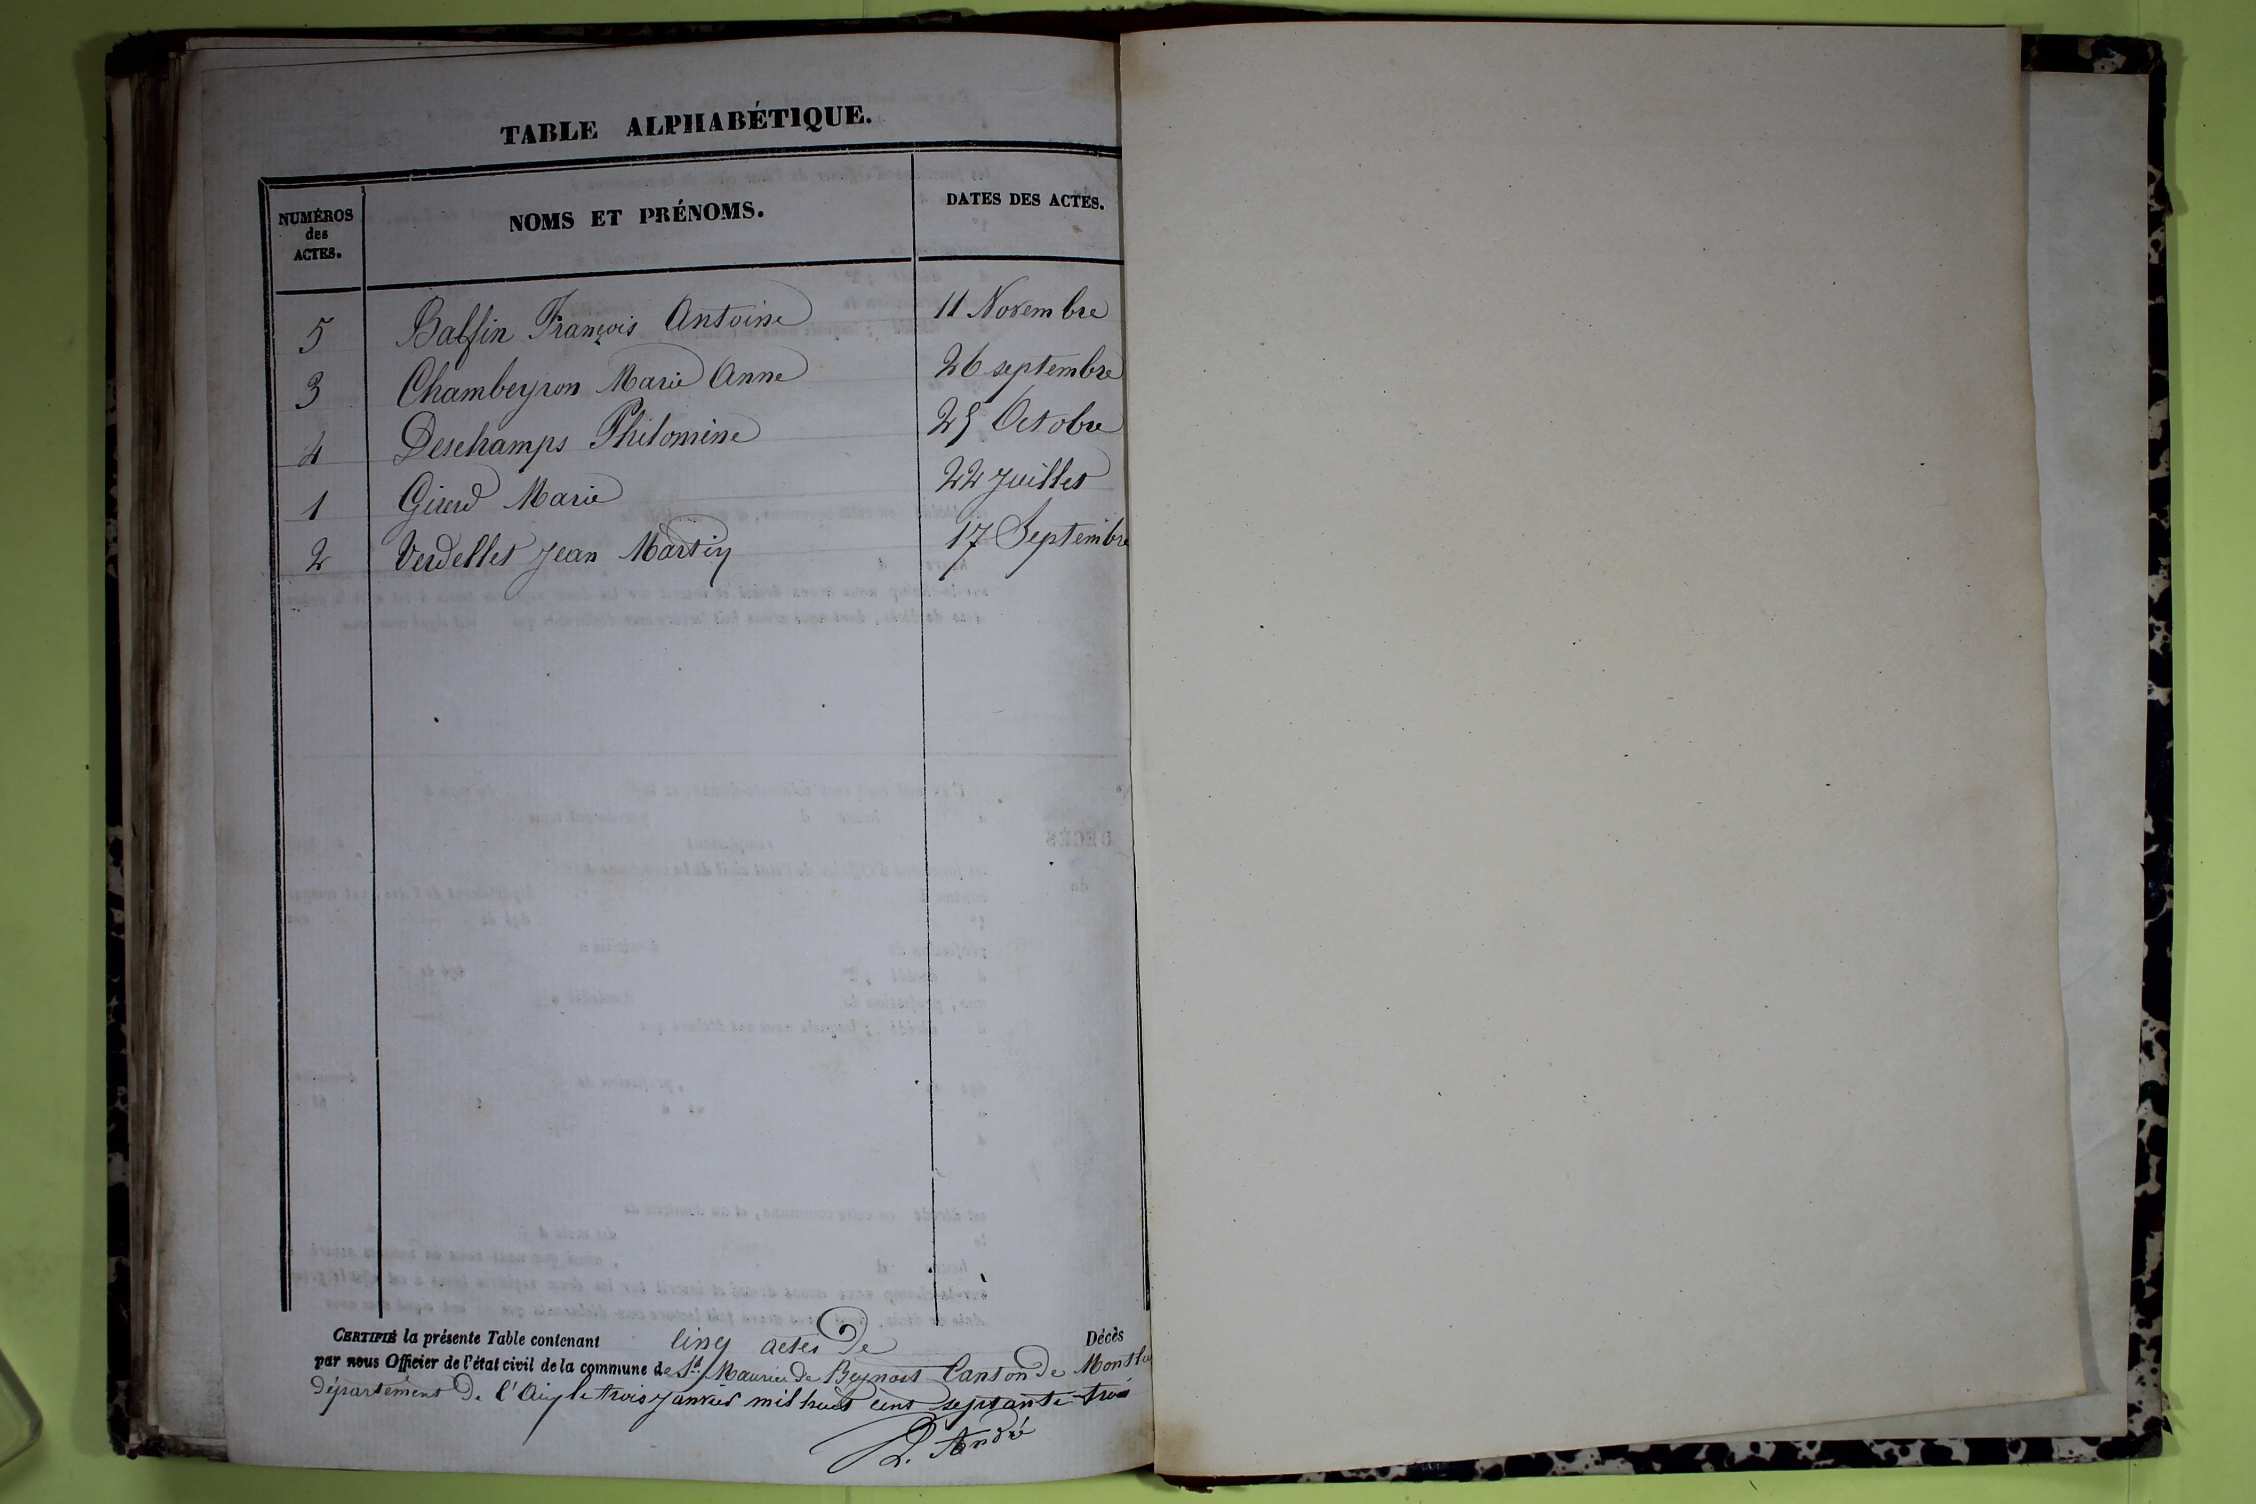 TABLE ALPHABÉTIQUE.
NUMÉROS des ACTES. NOMS ET PRÉNOMS. DATES DES ACTES.
5 Balfin François Antoine 11 Novembre
3 Chambeyron Marie Anne 26 septembre
4 Deschamps Philomène 25 Octobre
1 Girerd Marie 22 Juillet
2 Verdellet Jean Martin 17 Septembre
CERTIFIÉ la présente Table contenant cinq actes de Décès
par nous Officier de l'état civil de la commune de St Maurice de Beynost Canton de Montlu
département de l'Ain le trois janvier mil huit cent septante trois
P. André
DÉCÈS
du